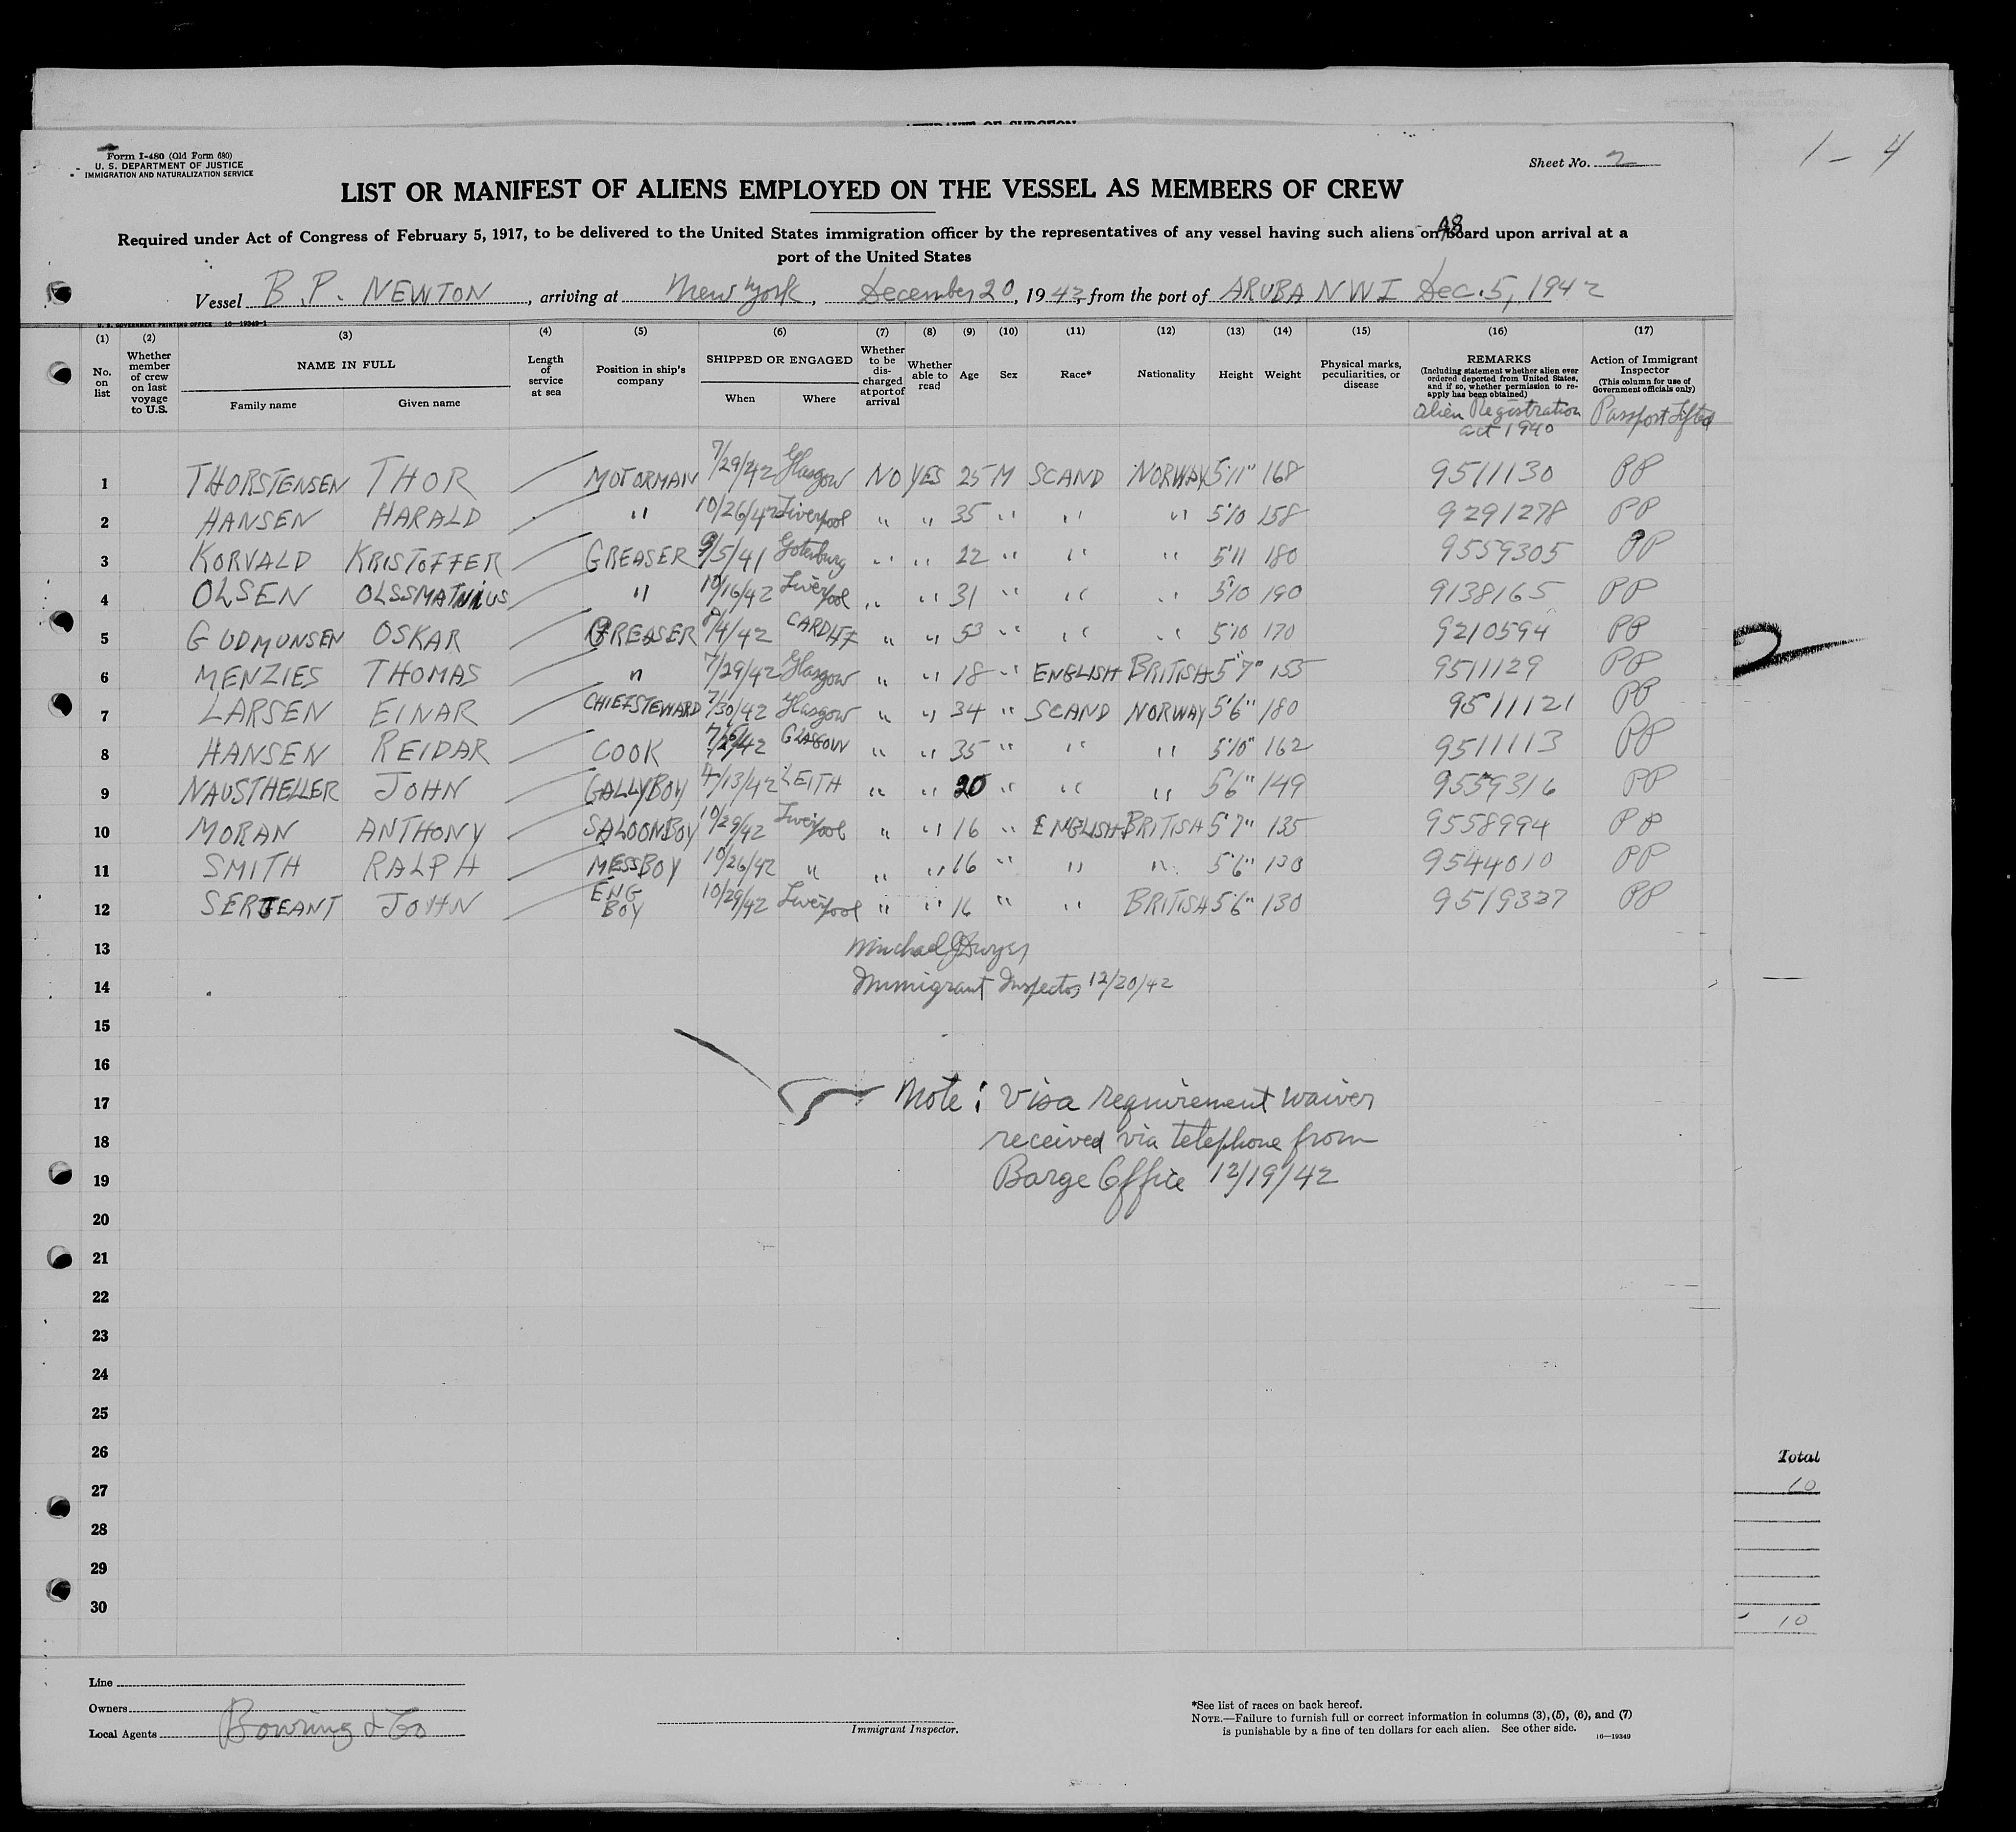 AFFIDAVIT OF SURGEON
Form I-480 (Old Form 680)
U. S. DEPARTMENT OF JUSTICE
IMMIGRATION AND NATURALIZATION SERVICE
Sheet No. 2
1 - 4
LIST OR MANIFEST OF ALIENS EMPLOYED ON THE VESSEL AS MEMBERS OF CREW
98
Required under Act of Congress of February 5, 1917, to be delivered to the United States immigration officer by the representatives of any vessel having such aliens on board upon arrival at a
port of the United States
Vessel B.P. NEWTON, arriving at New York, December 20, 1942, from the port of ARUBA NWI Dec. 5, 1942
U. S. GOVERNMENT PRINTING OFFICE 16—19349-1
(1) (2) (3) (4) (5) (6) (7) (8) (9) (10) (11) (12) (13) (14) (15) (16) (17)
No. on list
Whether member of crew on last voyage to U.S.
NAME IN FULL
Family name Given name
Length of service at sea
Position in ship's company
SHIPPED OR ENGAGED
When Where
Whether to be discharged at port of arrival
Whether able to read
Age Sex Race* Nationality Height Weight
Physical marks, peculiarities, or disease
REMARKS
(Including statement whether alien ever ordered deported from United States, and if so, whether permission to reapply has been obtained)
Alien Registration act 1940
Action of Immigrant Inspector
(This column for use of Government officials only)
Passport Lifted
1 THORSTENSEN THOR MOTORMAN 7/29/42 Glasgow NO YES 25 M SCAND NORWAY 5'11" 168 9511130 PP
2 HANSEN HARALD " 10/26/42 Liverpool " " 35 " " " 5'10 158 9291278 PP
3 KORVALD KRISTOFFER GREASER 9/5/41 Goteburg " " 22 " " " 5'11 180 9559305 PP
4 OLSEN " 10/16/42 Liverpool " " 31 " " " 5'10 190 9138165 PP
5 GUDMUNSEN OSKAR GREASER 8/4/42 CARDIFF " " 53 " " " 5'10 170 9210594 PP
6 MENZIES THOMAS " 7/29/42 Glasgow " " 18 " ENGLISH BRITISH 5'7" 155 9511129 PP
7 LARSEN EINAR CHIEF STEWARD 7/30/42 Glasgow " " 34 " SCAND NORWAY 5'6" 180 9511121 PP
8 HANSEN REIDAR COOK GLASGOW " " 35 " " " 5'10" 162 9511113 PP
9 NAUSTHELLER JOHN GALLYBOY 4/13/42 LEITH " " 20 " " " 5'6" 149 9559316 PP
10 MORAN ANTHONY SALOONBOY 10/29/42 Liverpool " " 16 " ENGLISH BRITISH 5'7" 135 9558994 PP
11 SMITH RALPH MESSBOY 10/26/42 " " " 16 " " " 5'6" 130 9544010 PP
12 SERJEANT JOHN ENG BOY 10/29/42 Liverpool " " 16 " " BRITISH 5'6" 130 9519337 PP
2
13 Michael J Dwyer
14 Immigrant Inspector 12/20/42
15
16
17 Note: Visa requirement waiver
18 received via telephone from
19 Barge Office 12/19/42
20
21
22
23
24
25
26
Total
27
10
28
29
30
10
Line
Owners
Local Agents Bowring & Co
Immigrant Inspector.
*See list of races on back hereof.
NOTE.—Failure to furnish full or correct information in columns (3), (5), (6), and (7)
is punishable by a fine of ten dollars for each alien. See other side.
16—19349